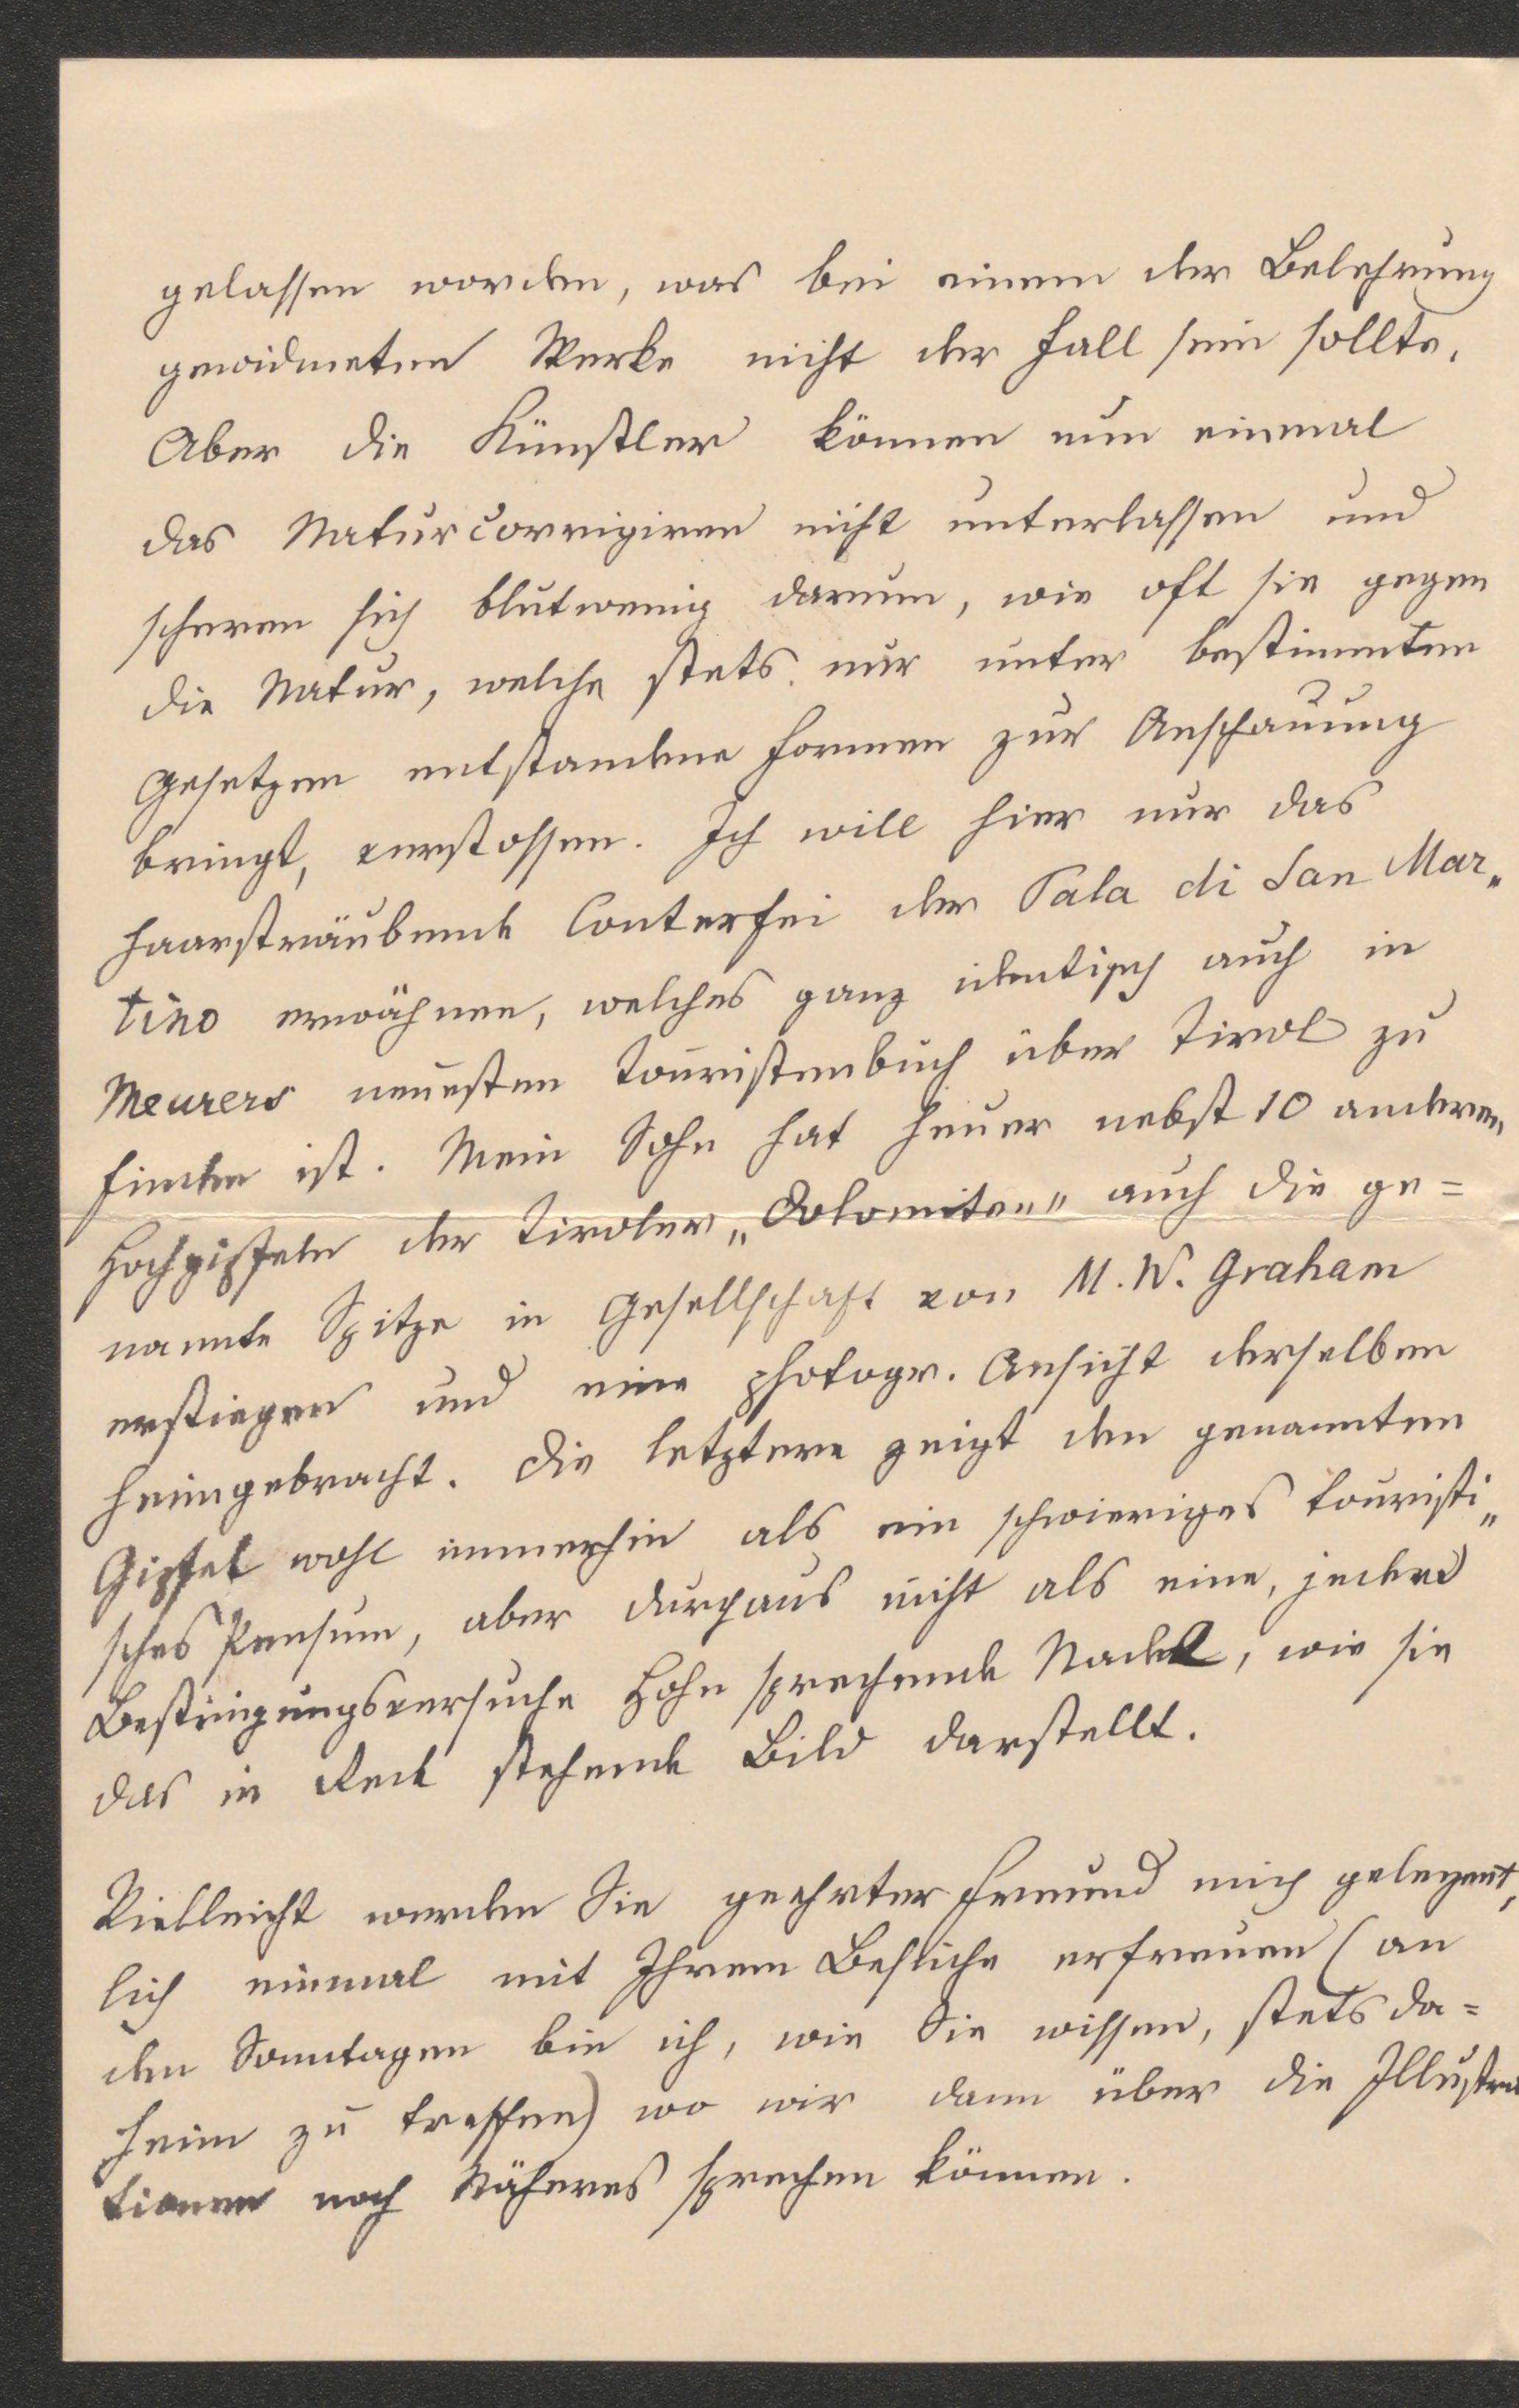 gelassen worden, was bei einem der Belehrung
gewidmeten Werke nicht der Fall sein sollte.
Aber die Künstler können nun einmal
das Naturcorrigiren nicht unterlassen und
scheren sich blutwenig darum, wie oft sie gegen
die Natur, welche stets nur unter bestimmten
Gesetzen entstandene Formen zur Anschauung
bringt, verstossen. Ich will hier nur das
haarsträubende Conterfei der Pala di San Mar„
tino erwähnen, welches ganz identisch auch in
Meurers neuesten Touristenbuch über Tirol zu
finden ist. Mein Sohn hat heuer nebst 10 anderen
Hochgipfeln der Tiroler „Dolomiten" auch die ge=
nannte Spitze in Gesellschaft von M. W. Graham
erstiegen und eine photogr. Ansicht derselben
heimgebracht. Die letztere zeigt den genannten
Gipfel wohl immerhin als ein schwieriges touristi„
sches Pensum, aber durchaus nicht als eine, jeder
Besteigungsversuche Hohn sprechende Nadel, wie sie
das in Rede stehende Bild darstellt.
Vielleicht werden Sie geehrter Freund mich gelegent„
lich einmal mit Ihrem Besuche erfreuen (an
den Sonntagen bin ich, wie Sie wissen, stets da=
heim zu treffen) wo wir dann über die Illustra
tionen noch Näheres sprechen können.